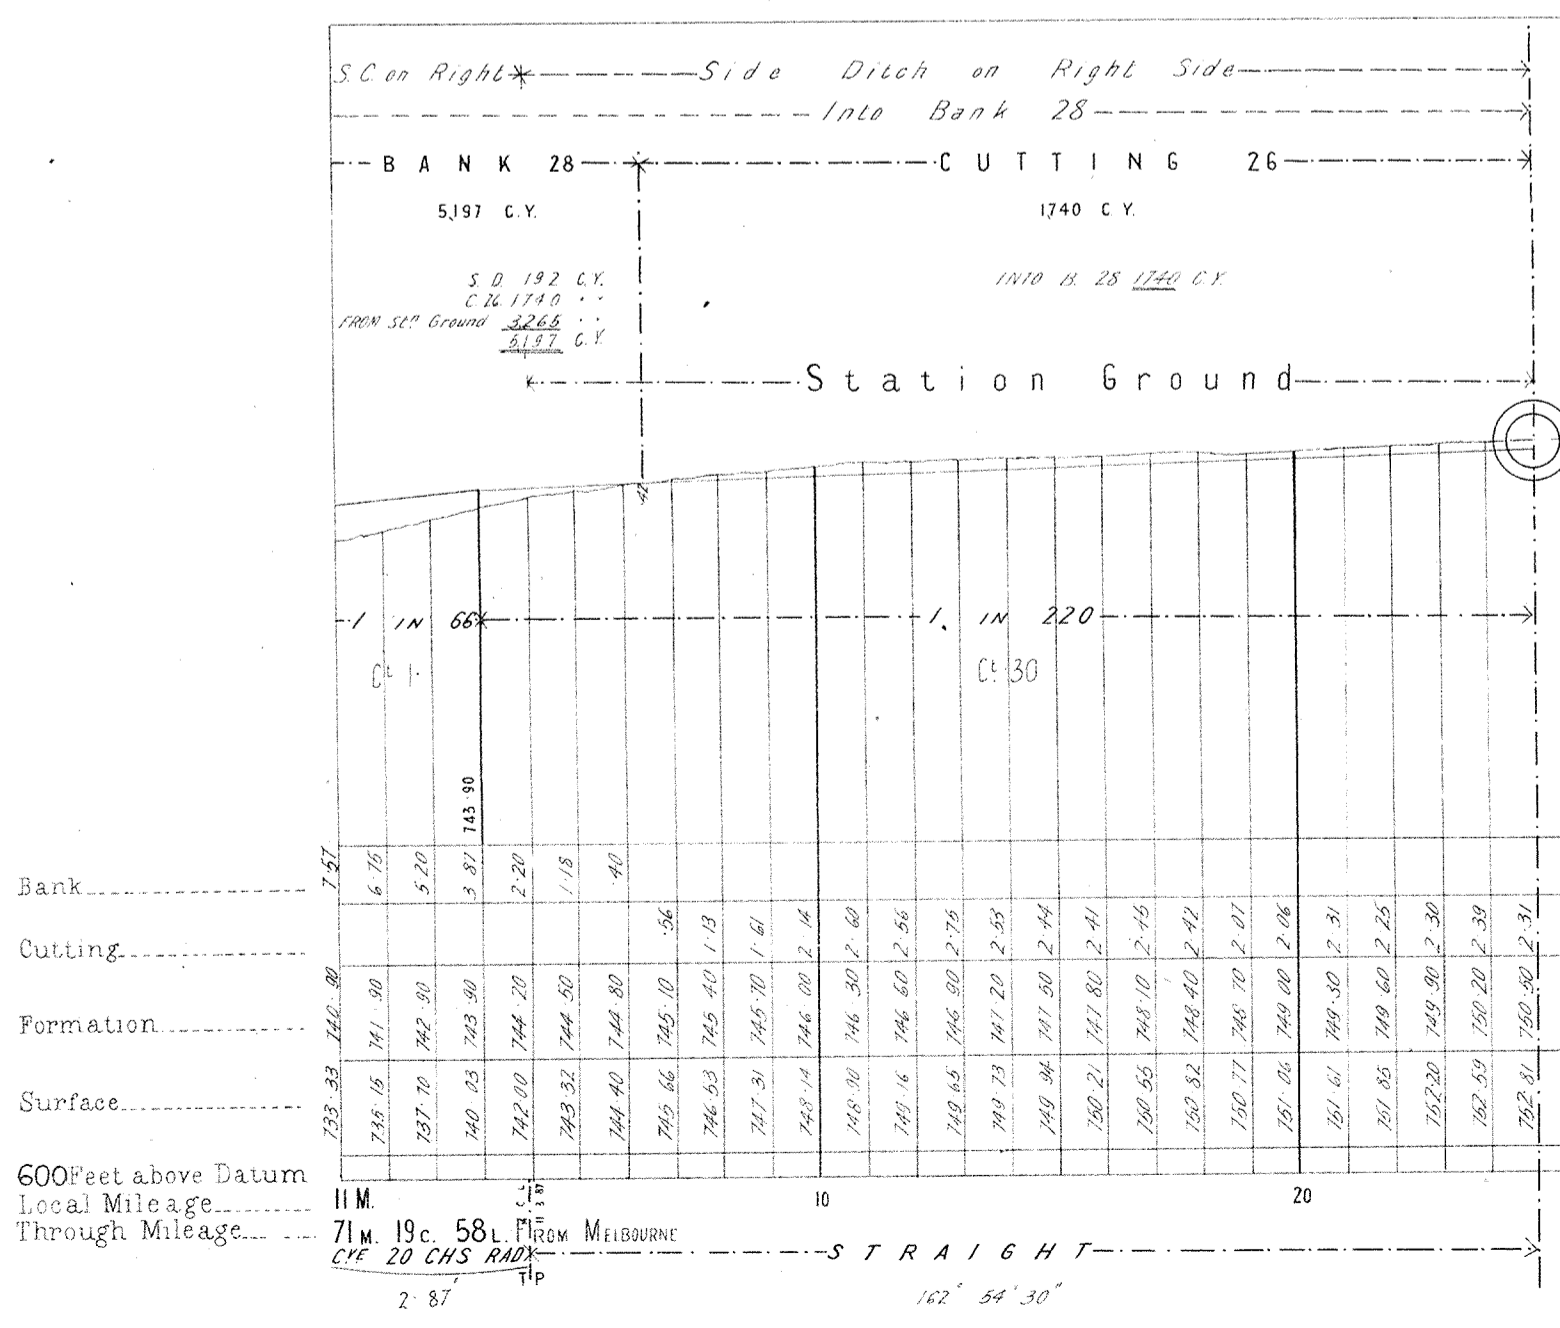 S.C. on Right Side Ditch on Right Side
Into Bank 28
BANK 28 CUTTING 26
5,197 C.Y. 1,740 C.Y.
S. D. 192 C.Y. INTO B. 28 1740 C.Y.
1740 " "
FROM Stn Ground 3,265 " "
5,197 C.Y.
Station Ground
1 IN 66 1 IN 220
Ct 1. Ct 30
743.90
Bank 7.57 6.75 5.20 3.87 2.20 1.18 .40
Cutting .56 1.13 1.61 2.14 2.60 2.56 2.75 2.53 2.44 2.41 2.45 2.42 2.07 2.06 2.31 2.25 2.30 2.39 2.31
Formation 740.90 741.90 742.90 743.90 744.20 744.50 744.80 745.10 745.40 745.70 746.00 746.30 746.60 746.90 747.20 747.50 747.80 748.10 748.40 748.70 749.00 749.30 749.60 749.90 750.20 750.50
Surface 733.33 735.15 737.70 740.03 742.00 743.32 744.40 745.66 746.53 747.31 748.14 748.90 749.16 749.65 749.73 749.94 750.21 750.55 750.82 750.77 751.06 751.61 751.85 752.20 752.59 752.81
600 Feet above Datum
Local Mileage 11 M. 10 20
Through Mileage 71 M. 19 C. 58 L. FROM MELBOURNE
CVE 20 CHS RAD STRAIGHT
TP
2.87 162° 54' 30"